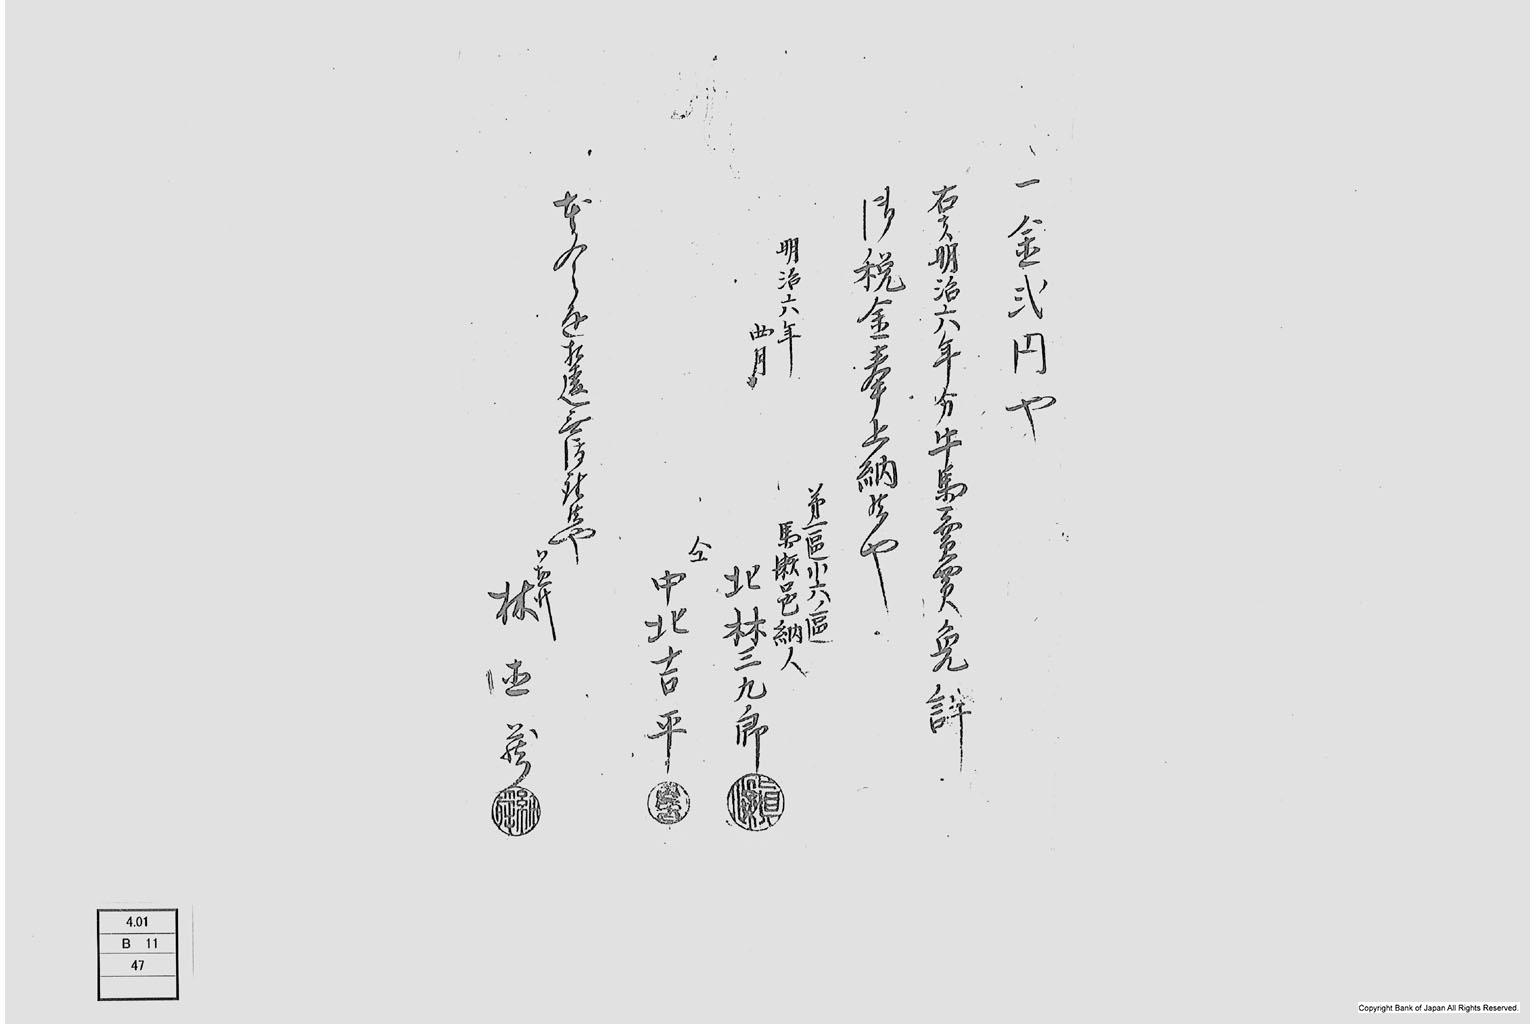 一金弐円也
右者明治六年分牛馬賣買免許
御税金奉上納候也
明治六年
四月
第一區小六ノ區
馬瀬邑納人
北林三九郎
仝
中北吉平
相違無御座候也
林
4.01
B 11
47
Copyright Bank of Japan All Rights Reserved.